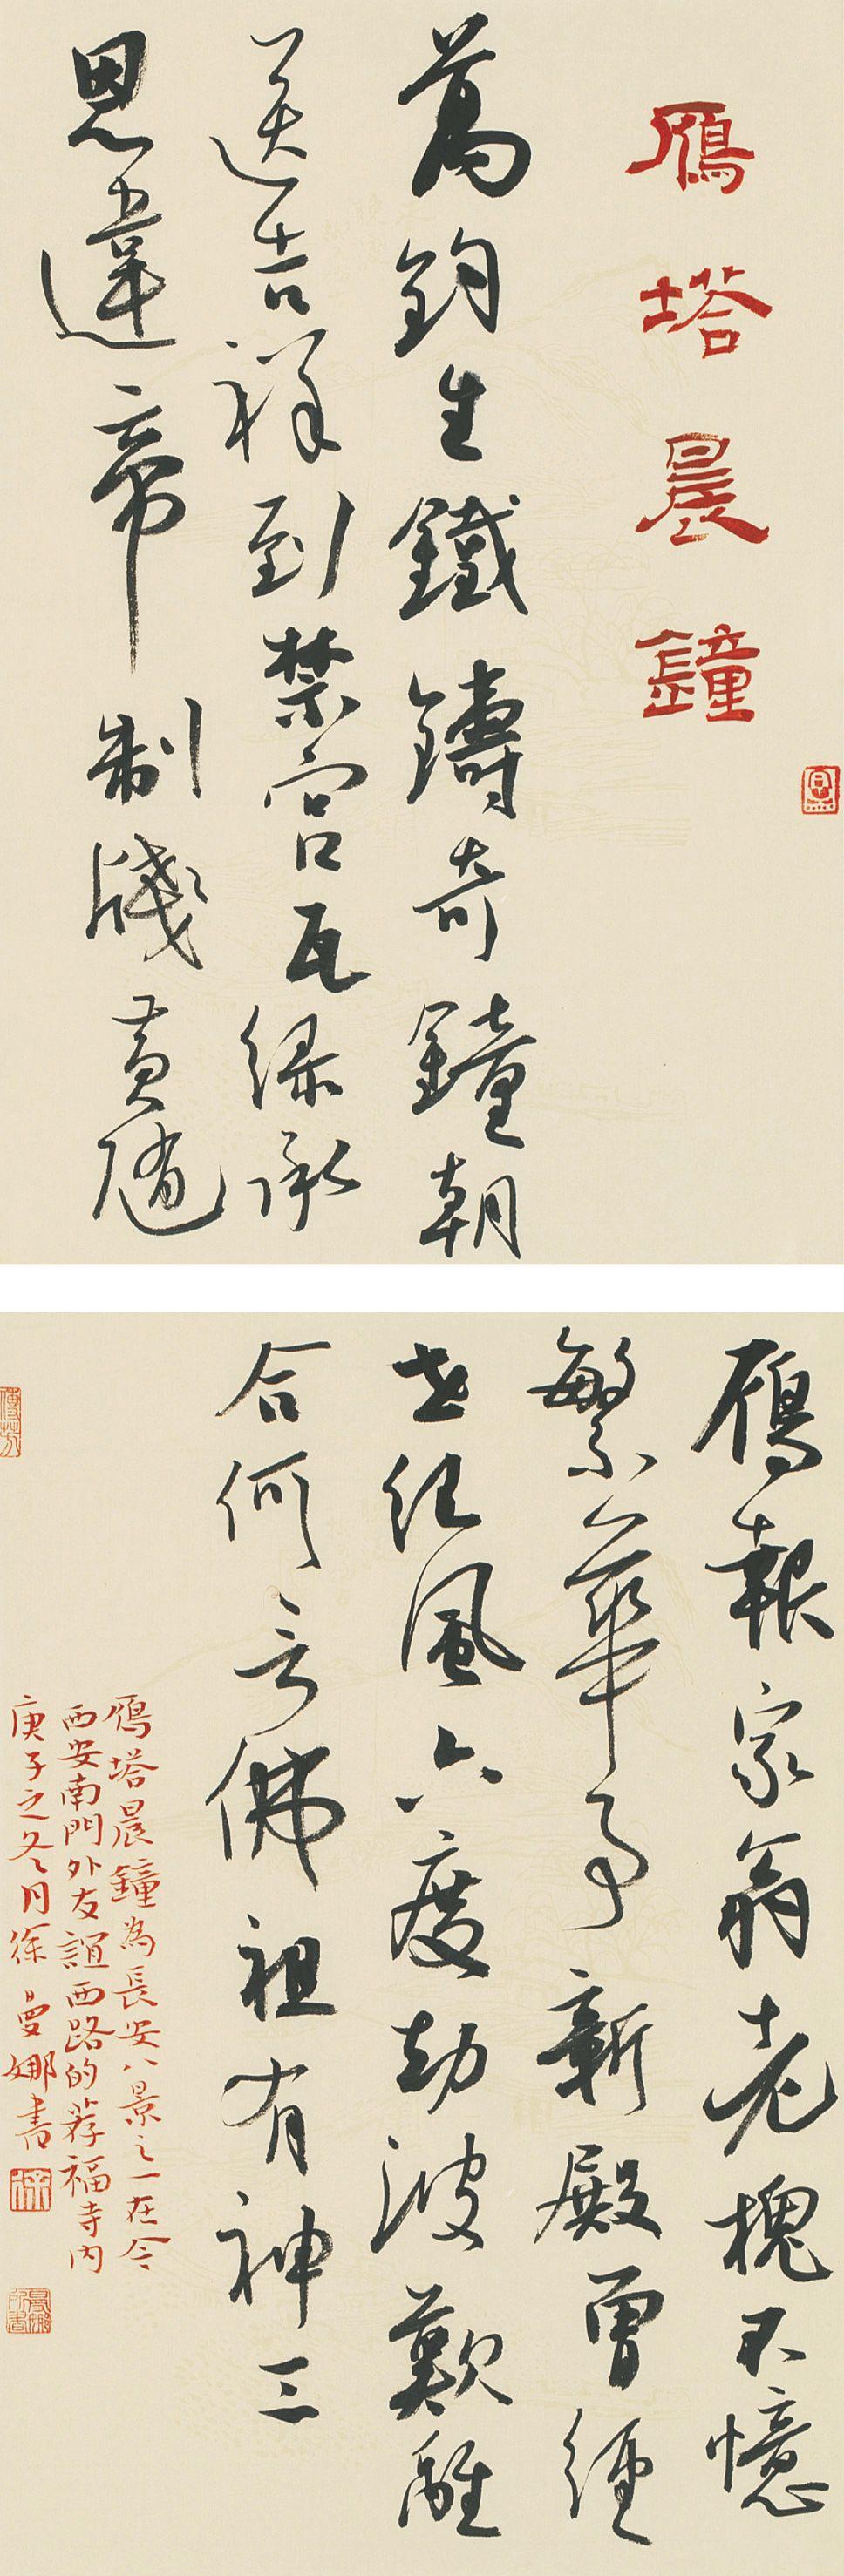 鴈塔晨鐘
萬鈞生鐵鑄奇鐘朝
送吉祥到禁宮瓦綠承
恩違帝制牋黃隨
鴈報家翁老槐不憶
繁華事新殿曾經
世紀風六度劫波歎離
合何言佛祖有神三
鴈塔晨鐘為長安八景之一在今
西安南門外友誼西路的荐福寺內
庚子之冬月徐曼娜書